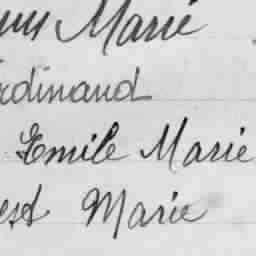 Marie
rdinand
Emile Marie
est Marie